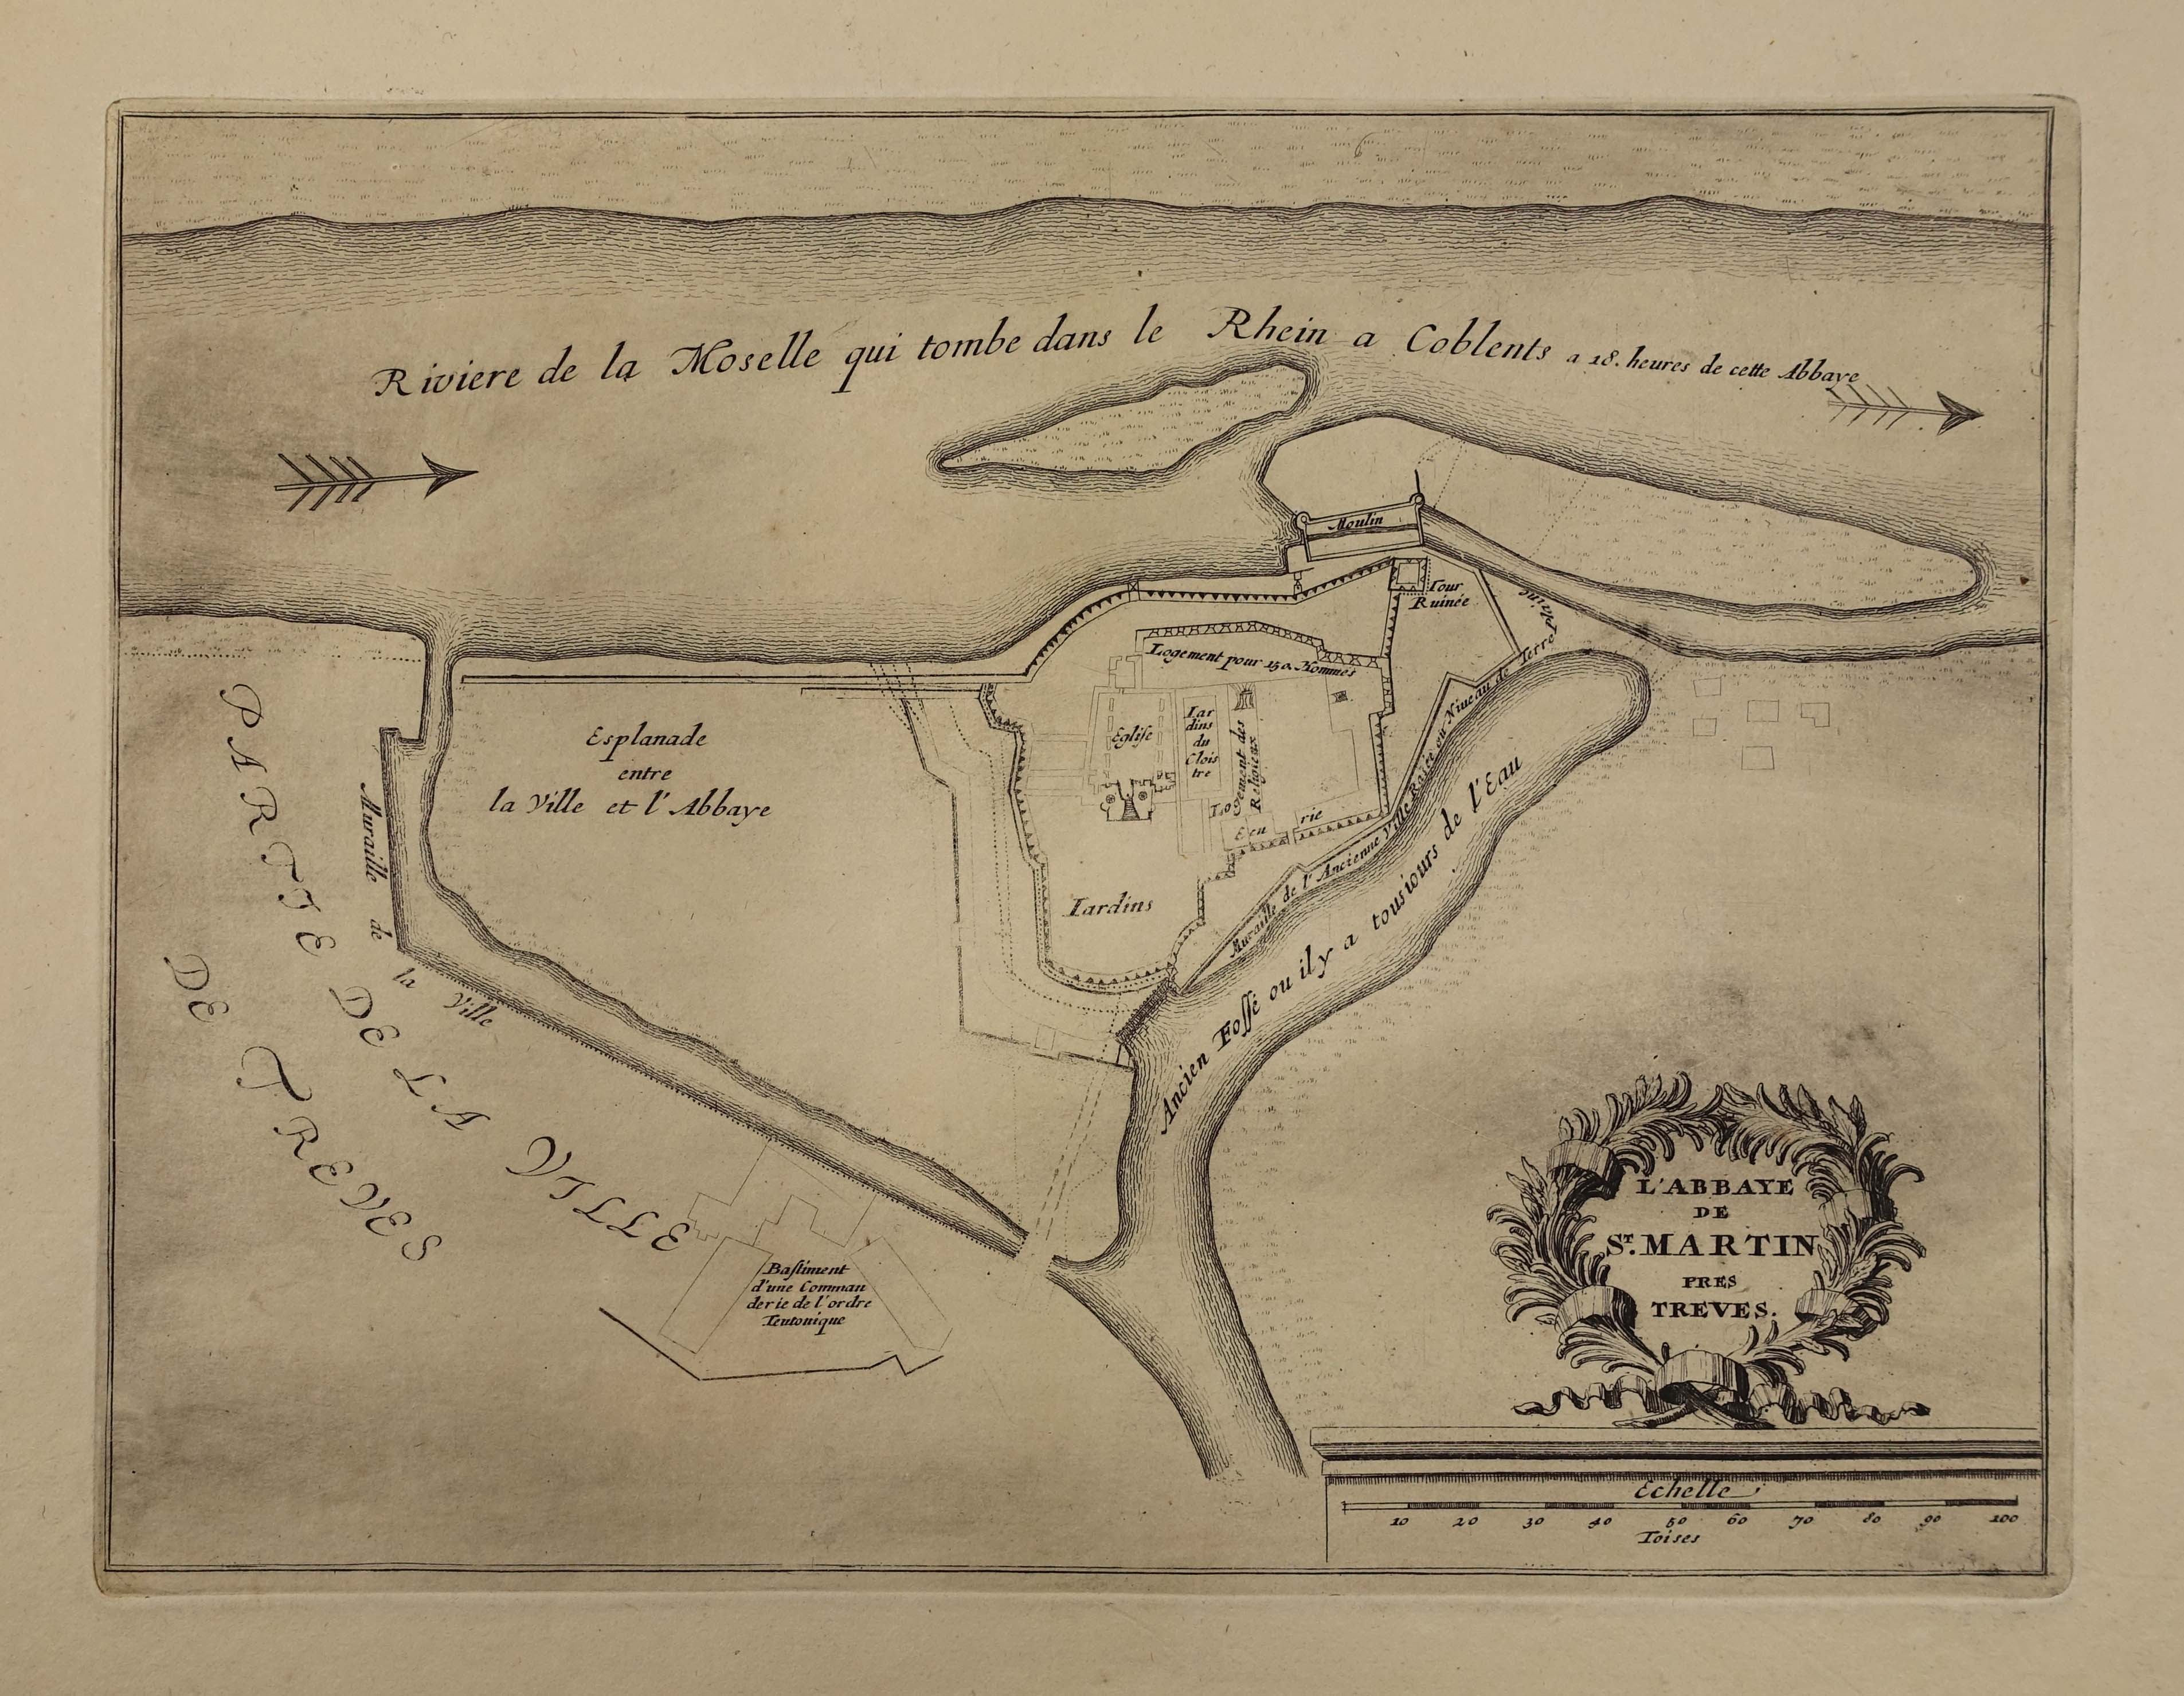 Riviere de la Moselle qui tombe dans le Rhein a Coblents a 18. heures de cette Abbaye
Moulin
Tour
Ruinée
Logement pour 150 Hommes
Esplanade
entre
la Ville et l'Abbaye
Eglise
Iar
dins
du
Clois
tre
Logement des
Religieux
Ecu rie
Iardins
Muraille de l'Ancienne Ville Rasée au Niveau de Terre Plaine
Ancien Fossé ou il y a tousiours de l'Eau
Muraille de la Ville
PARTIE DE LA VILLE
DE TREVES
Bastiment
d'une Comman
derie de l'ordre
Teutonique
L'ABBAYE
DE
ST. MARTIN
PRES
TREVES.
Echelle
10 20 30 40 50 60 70 80 90 100
Toises